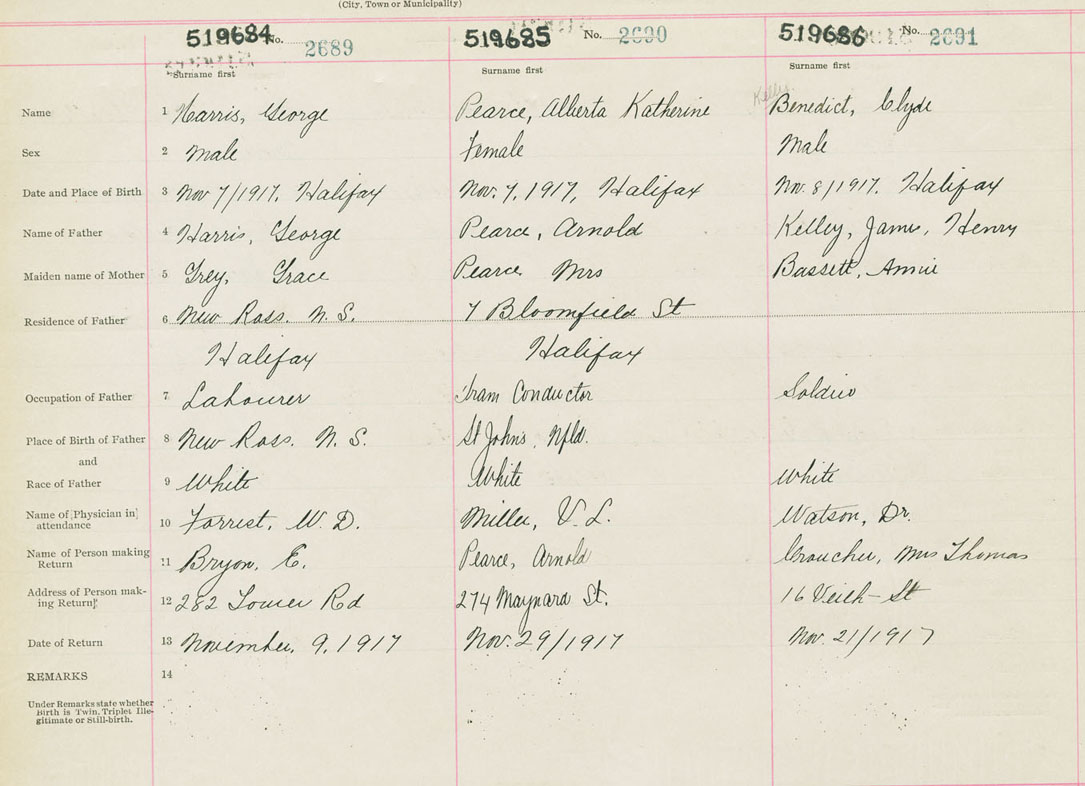 (City, Town or Municipality)
519684 No. 2689 519685 No. 2690 519686 No. 2691
Surname first Surname first Surname first
Name 1 Harris, George Pearce, Alberta Katherine Kelly Benedict, Clyde
Sex 2 Male Female Male
Date and Place of Birth 3 Nov 7/1917. Halifax Nov. 7, 1917, Halifax Nov. 8/1917. Halifax
Name of Father 4 Harris, George Pearce, Arnold Kelley, James, Henry
Maiden name of Mother 5 Grey, Grace Pearce Mrs Bassett, Annie
Residence of Father 6 New Ross. N.S. 7 Bloomfield St
Halifax Halifax
Occupation of Father 7 Labourer Tram Conductor Soldier
Place of Birth of Father 8 New Ross. N.S. St Johns, Nfld.
and
Race of Father 9 White White White
Name of [Physician in]
attendance 10 Forrest, W. D. Miller, V. L. Watson, Dr.
Name of Person making
Return 11 Bryon, E. Pearce, Arnold Croucher, Mrs Thomas
Address of Person mak-
ing Return 12 282 Tower Rd 274 Maynard St. 16 Veith St
Date of Return 13 November, 9, 1917 Nov. 29/1917 Nov. 21/1917
REMARKS 14
Under Remarks state whether
Birth is Twin, Triplet Ille-
gitimate or Still-birth.